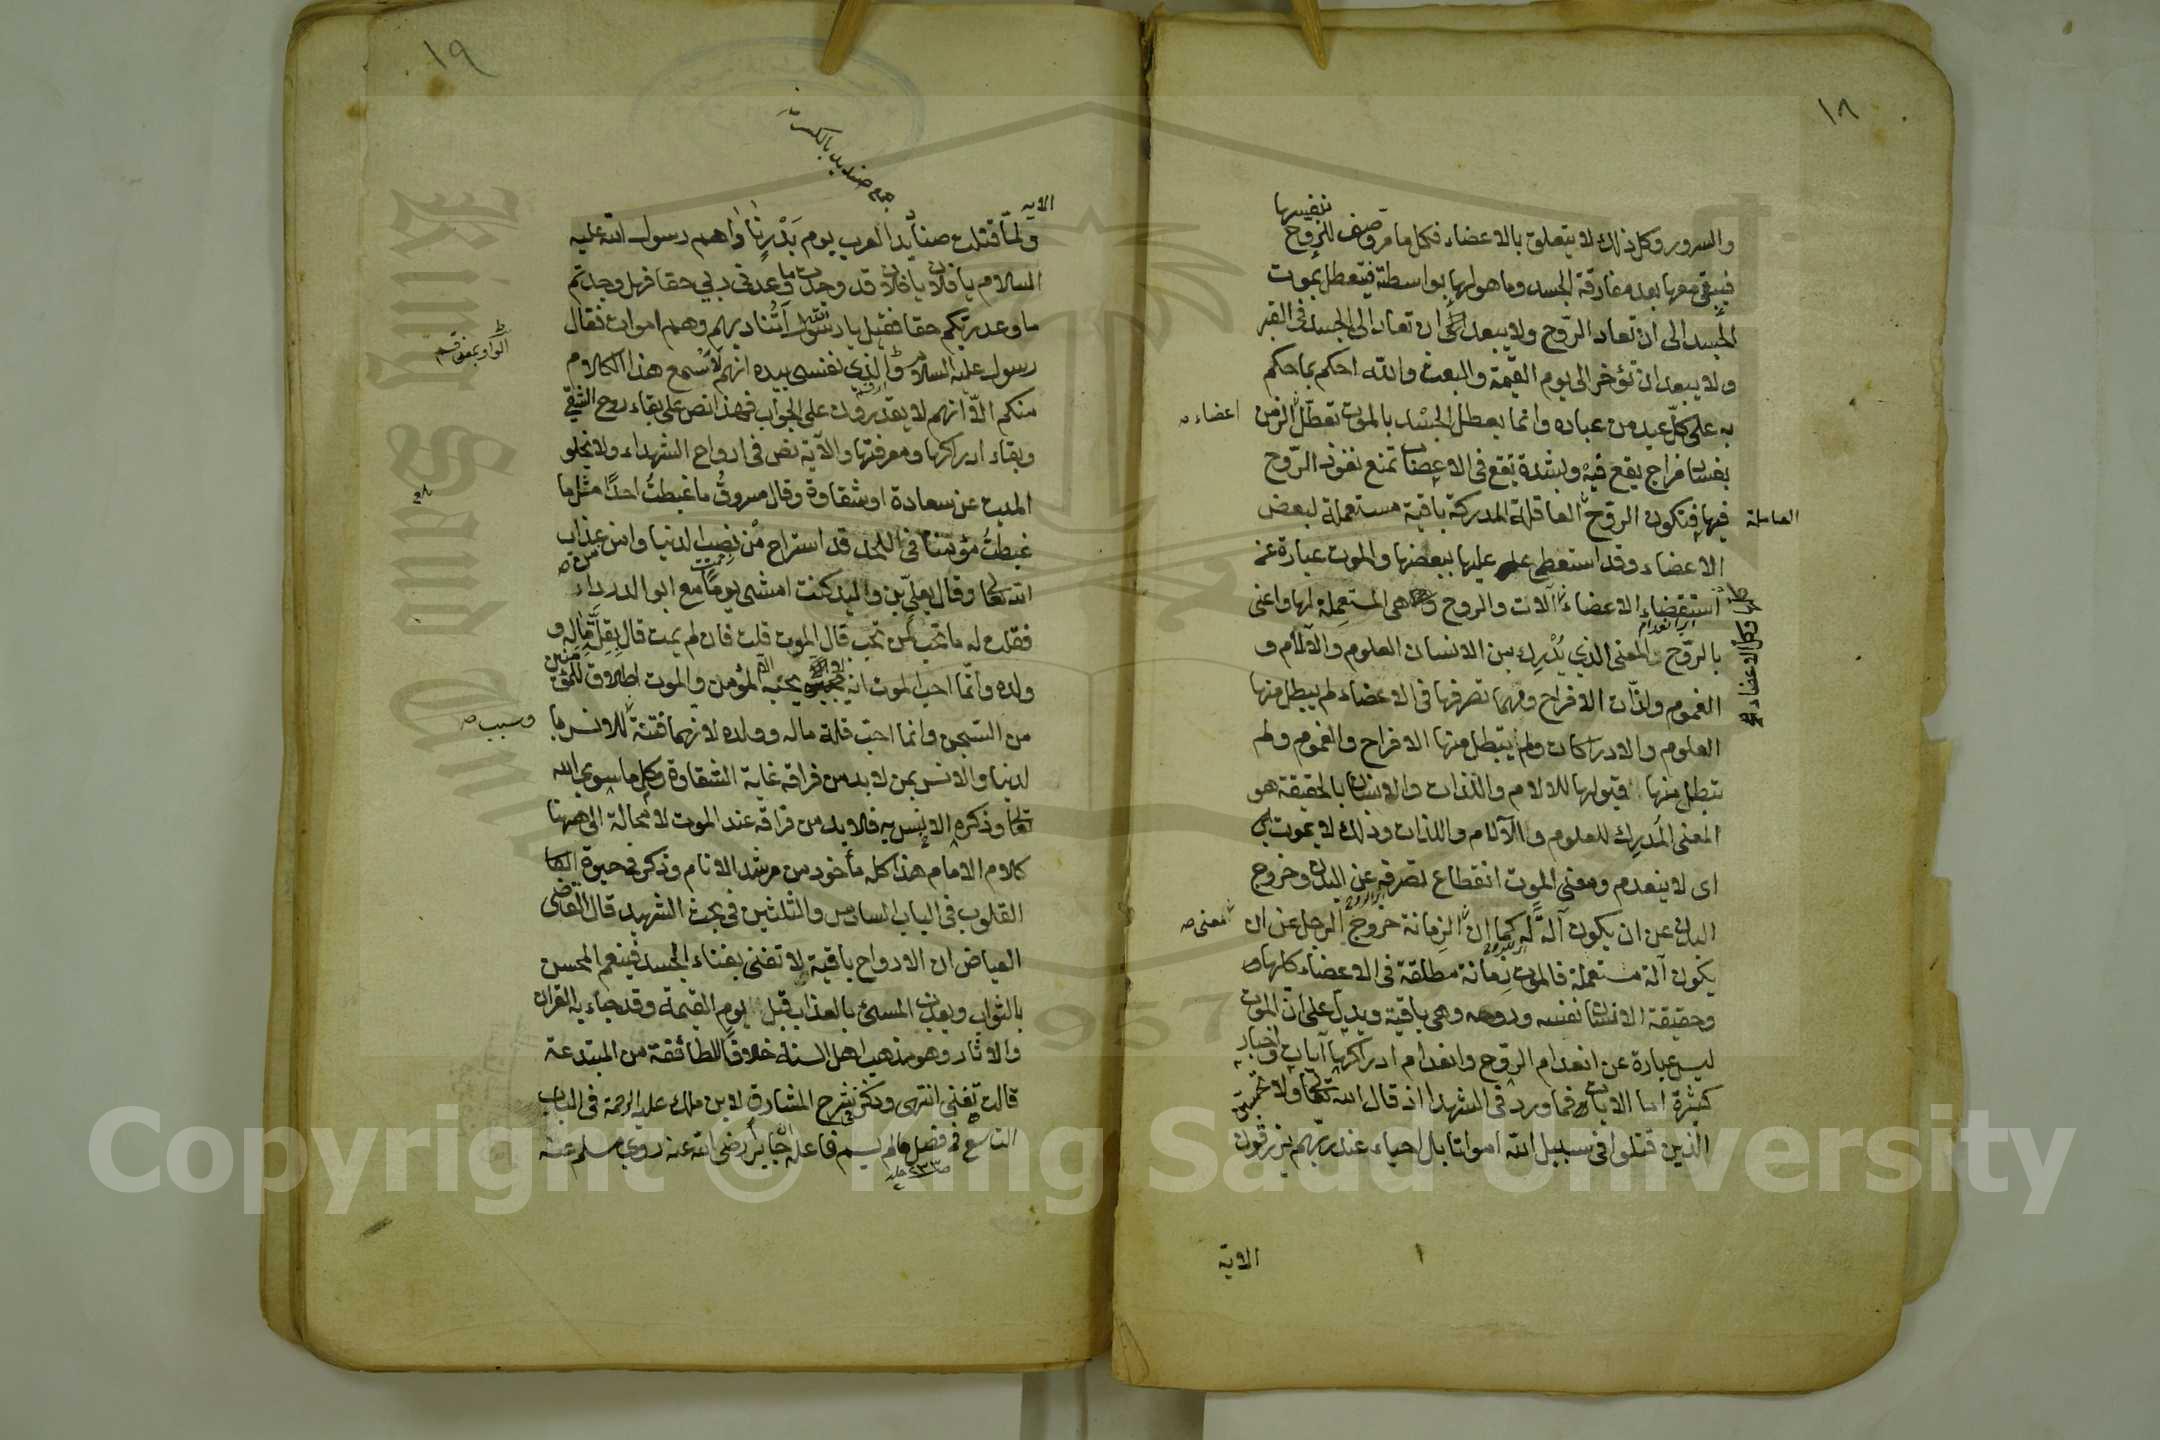 ١٨
والسرور وكل ذلك لا يتعلق بالاعضاء فكل ما هو وصف للروح بنفسها
فيبقى معها بعد مفارقة الجسد وما هو لها بواسطة فيتعطل بموت
الجسد الى ان تعاد الروح ولا يبعد ان تعاد الى الجسد فى القبر
ولا يبعد ان تؤخر الى يوم القيمة والبعث والله احكم بما حكم
به على كل عبد من عباده وانما يعطل الجسد بالموت تعطل الزمن
اعضاء صـ
بفساد مزاج يقع فيه وبشدة تقع فى الاعصاب تمنع نفوذ الروح
فيها فتكون الروح العاقلة المدركة باقية مستعملة لبعض
العاملة
الاعضاء وقد استعطى عليها ببعضها والموت عبارة عن
استعضاء الاعضاء آلات والروح هى المستعملة لها واعنى
وكل الاعضاء
بالروح المعنى الذي يدرك من الانسان العلوم والآلام و
الغموم ولذات الافراح ومهما تصرفها فى الاعضاء لم يبطل منها
العلوم والادراكات ولم يبطل منها الافراح والغموم ولم
يتطل منها قبولها للالام واللذات والانسان بالحقيقة هو
المعنى المدرك للعلوم والآلام واللذات وذلك لا يموت
اى لا ينعدم ومعنى الموت انقطاع تصرفه عن البدن وخروج
البدن عن ان يكون آلة له كما ان الزمانة خروج الرجل عن ان
معنى صـ
يكون آلة مستعملة فالموت زمانة مطلقة فى الاعضاء كلها
وحقيقة الانسان نفسه وروحه وهى باقية ويدل على ان الموت
ليس عبارة عن انعدام الروح وانعدام ادراكها آيات واخبار
كثيرة اما الايات فما ورد فى الشهدا اذ قال الله تعالى ولا تحسبن
الذين قتلوا فى سبيل الله امواتا بل احياء عند ربهم يرزقون
الاية
١٩
جمع صنديد بالكسر
الاية
ولما قتلت صناديد العرب يوم بدر ناداهم رسول الله عليه
السلام يا فلان يا فلان قد وجدت ما وعدنى ربي حقا فهل وجدتم
ما وعد ربكم حقا فقيل يا رسول الله اتناديهم وهم اموات فقال
الواو بمعنى قسم
رسول عليه السلام والذي نفسى بيده انهم لاسمع هذا الكلام
منكم الا انهم لا يقدرون على الجواب فهذا نص على بقاء روح الشقي
وبقاء ادراكها ومعرفتها والآية نص فى ارواح الشهداء ولا يخلو
الميت عن سعادة او شقاوة وقال مسروق ما غبطت احدا مثل ما
غبطت مؤمنا فى اللحد قد استراح من نصب الدنيا وامن عذاب
الله تعالى وقال يعلى بن وليد كنت امشى يوما مع ابو الدرداء
فقلت له ما تحب لمن تحب قال الموت قلت فان لم يمت قال يقل ماله و
ولده وانما احب الموت لانه يحبه المؤمن والموت اطلاق للمؤمنين
من السجن وانما احب قلة ماله وولده لانهما فتنة للانس با
وسبب صـ
لدنيا والانس بمن لا بد من فراقه غاية الشقاوة وكل ما سوى الله
تعالى وذكره والانس به فلا بد من فراقه عند الموت لا محالة الى ههنا
كلام الامام هذا كله مأخوذ من مرشد الانام وذكر فى حيوة
القلوب فى الباب السادس والثلثين فى بحث الشهيد قال القاضى
العياض ان الارواح باقية لا تفنى بفناء الجسد فينعم المحسن
بالثواب ويعذب المسئ بالعذاب قبل يوم القيمة وقد جاء به القران
والاثار وهو مذهب اهل السنة خلافا للطائفة من المبتدعة
قالت تفنى انتهى وذكر فى شرح المشارق لابن ملك عليه الرحمة فى الباب
التاسع فى فصل ما لم يسم فاعله جابر رضى الله عنه روى مسلم عنه
Copyright © King Saud University
King Saud
1957